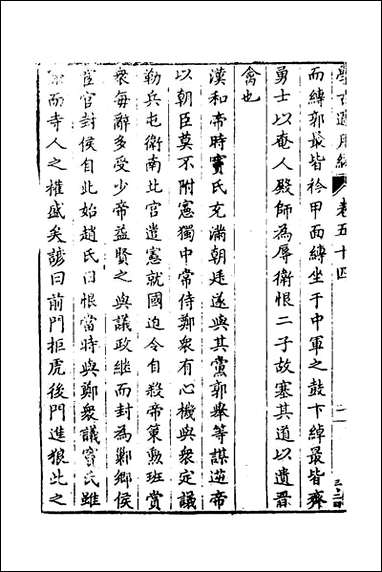 學古適用編 卷五十四 二
而縛郭最皆衿甲面縛坐于中軍之鼓下綽最皆齊
勇士以奄人殿師為辱銜恨二子故塞其道以遺晉
禽也
漢和帝時竇氏充滿朝廷遂與其黨郭舉等謀逆帝
以朝臣莫不附憲獨中常侍鄭衆有心機與衆定議
勒兵屯衛南北宮遣憲就國迫令自殺帝策勲班賞
衆每辭多受少帝益賢之與議政繼而封為鄛鄉侯
宦官封侯自此始趙氏曰恨當時與鄭衆議竇氏雖
而寺人之權盛矣諺曰前門拒虎後門進狼此之